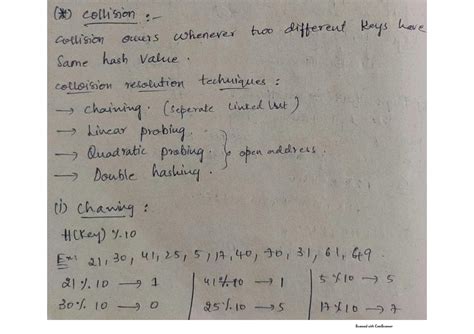 (*) Collision :-
Collision occurs whenever two different keys have
same hash value.
colloision resolution techniques :
→ chaining. (seperate linked list)
→ Linear probing.
→ Quadratic probing. } open address.
→ Double hashing.
(i) Chaining :
H(key) % 10
Ex: 21, 30, 41, 25, 5, 17, 40, 90, 31, 61, 649
21 % 10 → 1 | 41 % 10 → 1 | 5 % 10 → 5
30 % 10 → 0 | 25 % 10 → 5 | 17 % 10 → 7
Scanned with CamScanner